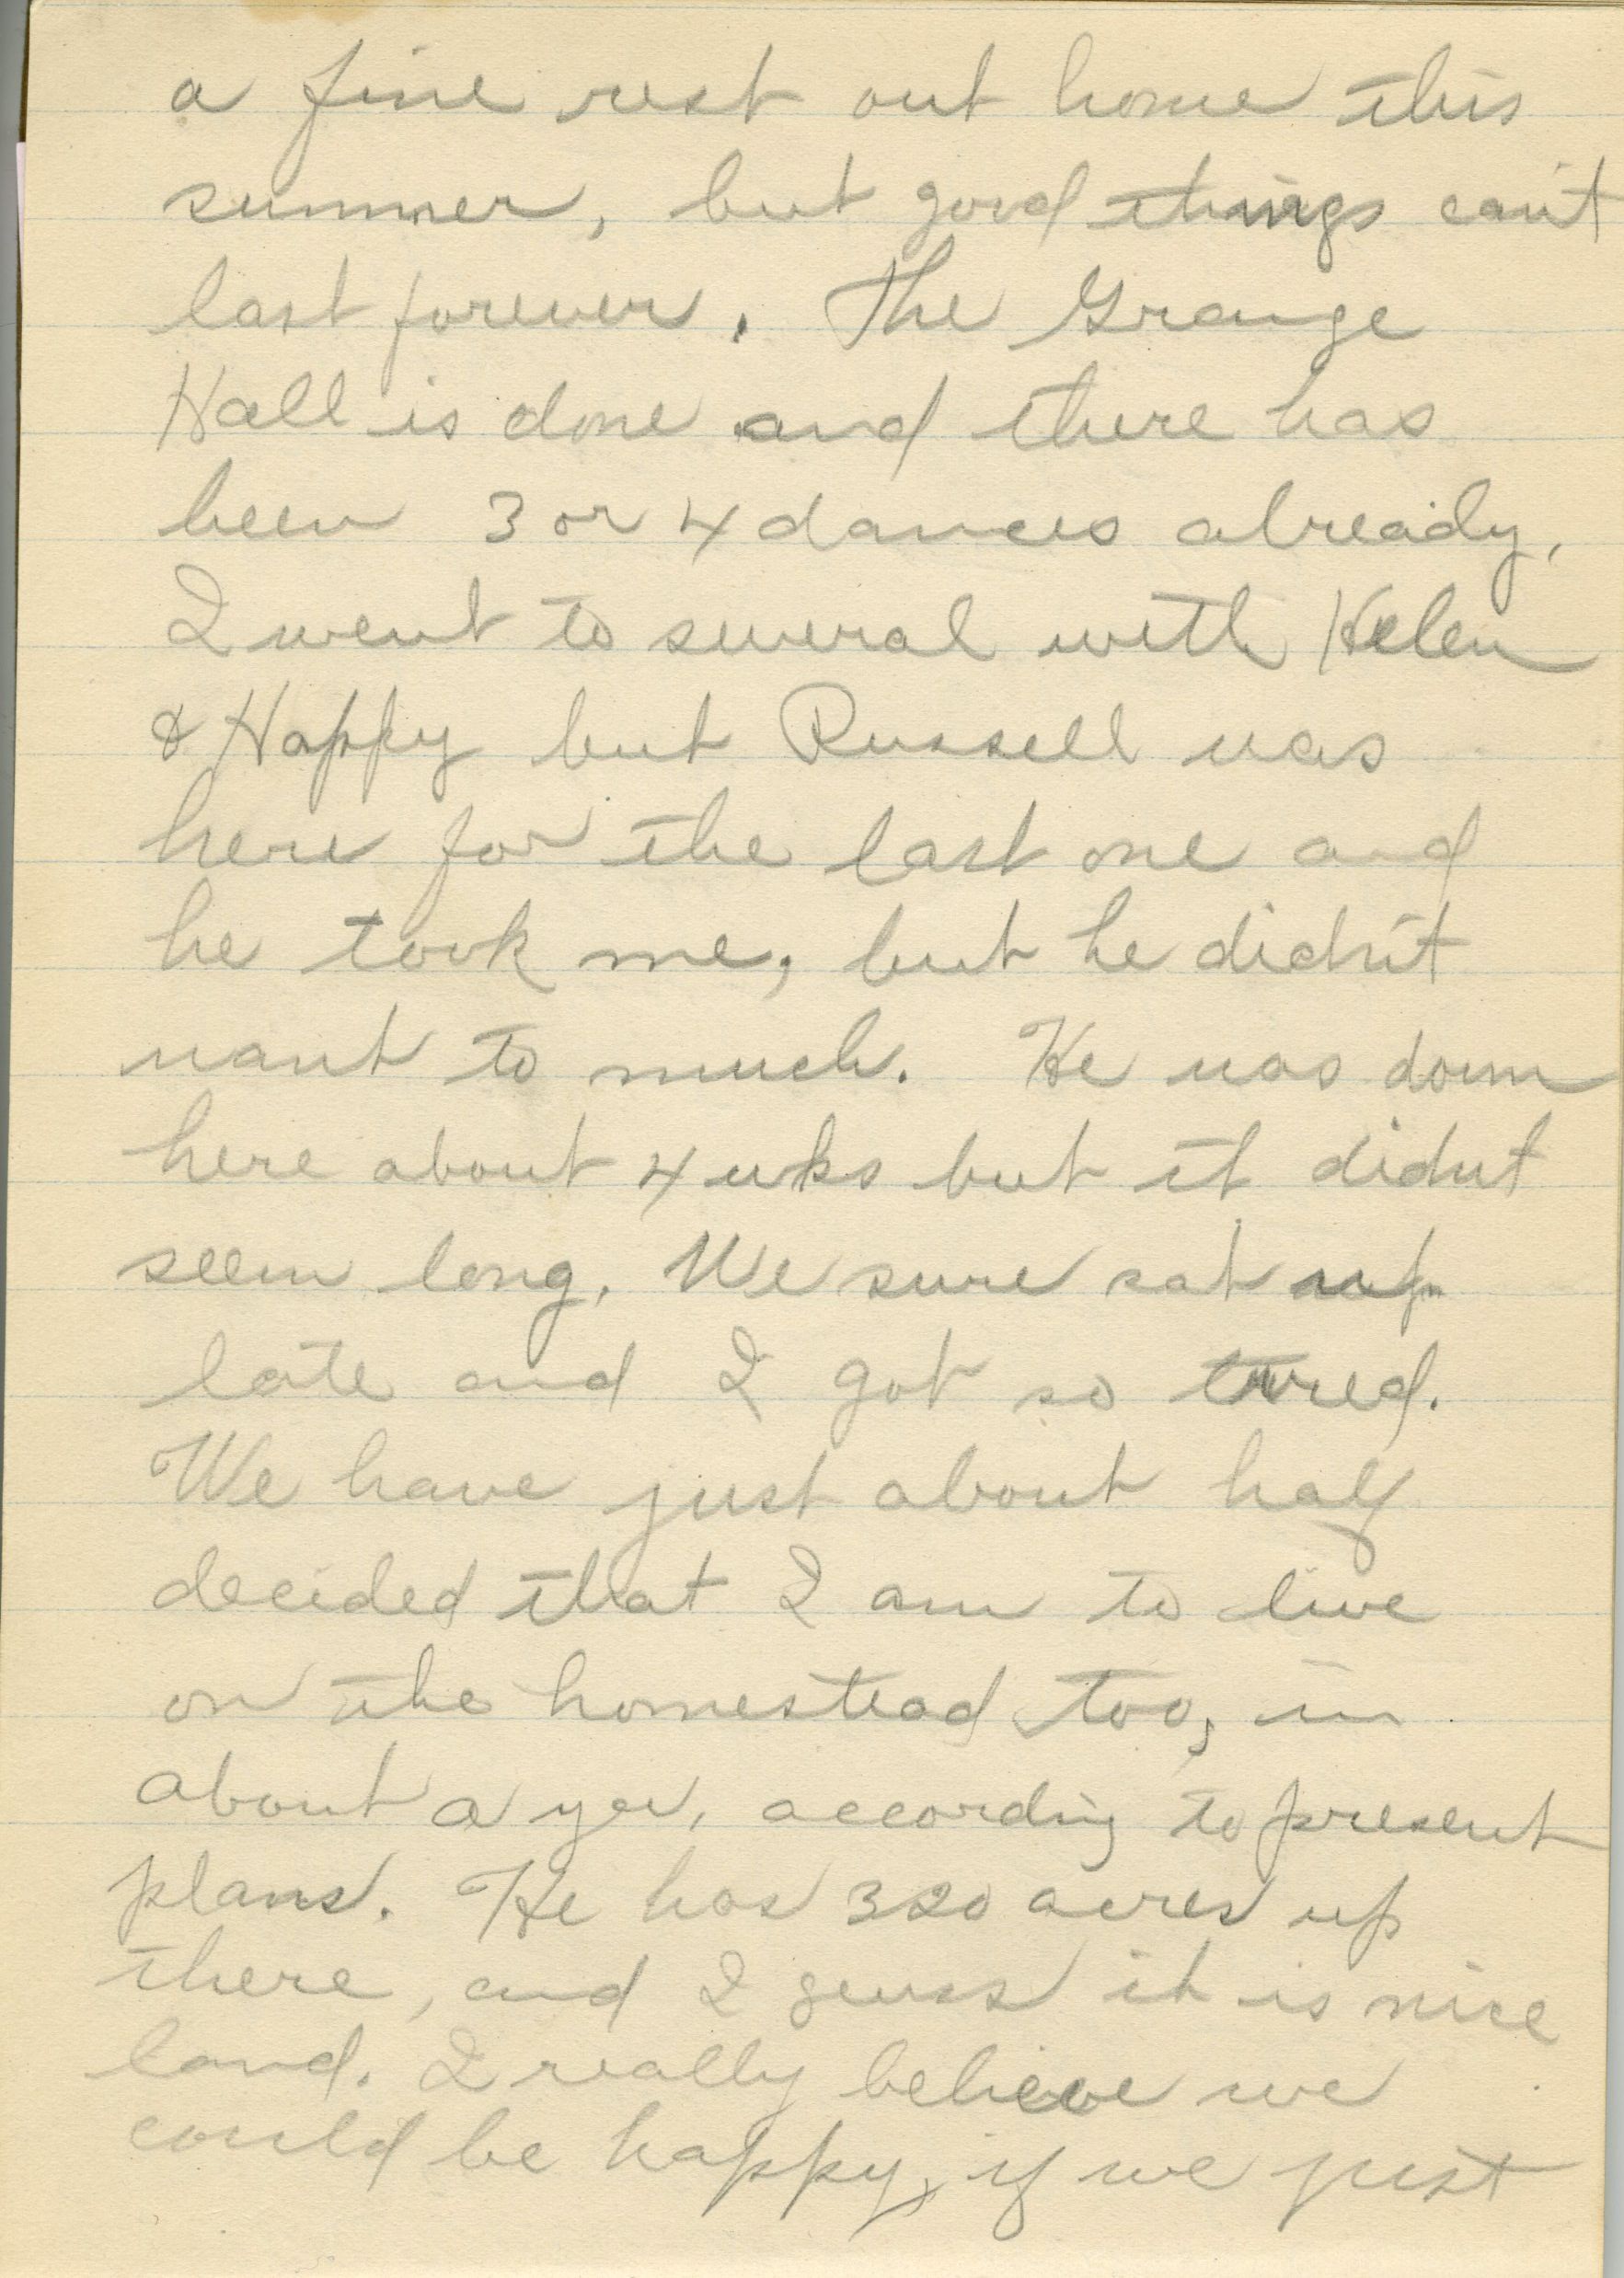 a fine rest out home this
summer, but good things can't
last forever. The Grange
Hall is done and there has
been 3 or 4 dances already,
I went to several with Helen
& Happy but Russell was
here for the last one and
he took me, but he didn't
want to much. He was down
here about 4 wks but it didnt
seem long. We sure sat up
late and I got so tired.
We have just about half
decided that I am to live
on the homestead too, in
about a yer, according to present
plans. He has 320 acres up
there, and I guess it is nice
land. I really believe we
could be happy, if we just